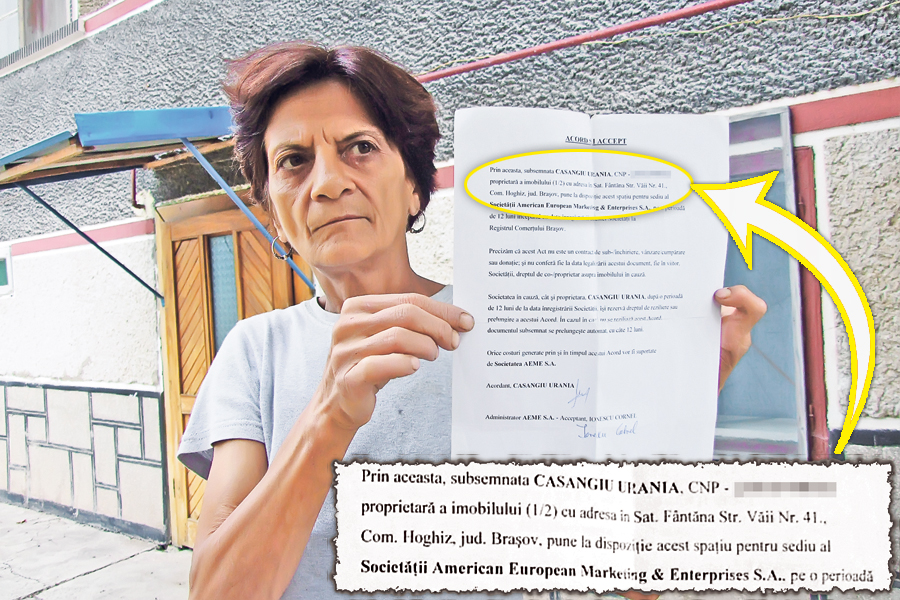 ACORD ACCEPT
Prin aceasta, subsemnata CASANGIU URANIA, CNP -
proprietară a imobilului (1/2) cu adresa in Sat. Fântâna Str. Văii Nr. 41.,
Com. Hoghiz, jud. Braşov, pune la dispoziţie acest spaţiu pentru sediu al
Societăţii American European Marketing & Enterprises S.A., pe o perioadă
de 12 luni
Registrul Comerţului Braşov.
Precizăm că acest Act nu este un contract de sub-închiriere, vânzare cumpărare
sau donaţie; şi nu conferă fie la data legalizării acestui document, fie în viitor,
Societăţii, dreptul de co-proprietar asupra imobilului în cauză.
Societatea in cauză, cât şi proprietara, CASANGIU URANIA, după o perioadă
de 12 luni de la data inregistrării Societăţii, îşi rezervă dreptul de reziliere sau
prelungire a acestui Acord. În cazul în care nu se reziliază acest Acord
documentul subsemnat se prelungeşte automat, cu câte 12 luni.
Orice costuri generate prin şi în timpul acestui Acord vor fi suportate
de Societatea AEME S.A.
Acordant, CASANGIU URANIA
Administrator AEME S.A. - Acceptant, IONESCU CORNEL
Ionescu Cornel
Prin aceasta, subsemnata CASANGIU URANIA, CNP -
proprietară a imobilului (1/2) cu adresa in Sat. Fântâna Str. Văii Nr. 41.,
Com. Hoghiz, jud. Braşov, pune la dispoziţie acest spaţiu pentru sediu al
Societăţii American European Marketing & Enterprises S.A., pe o perioadă